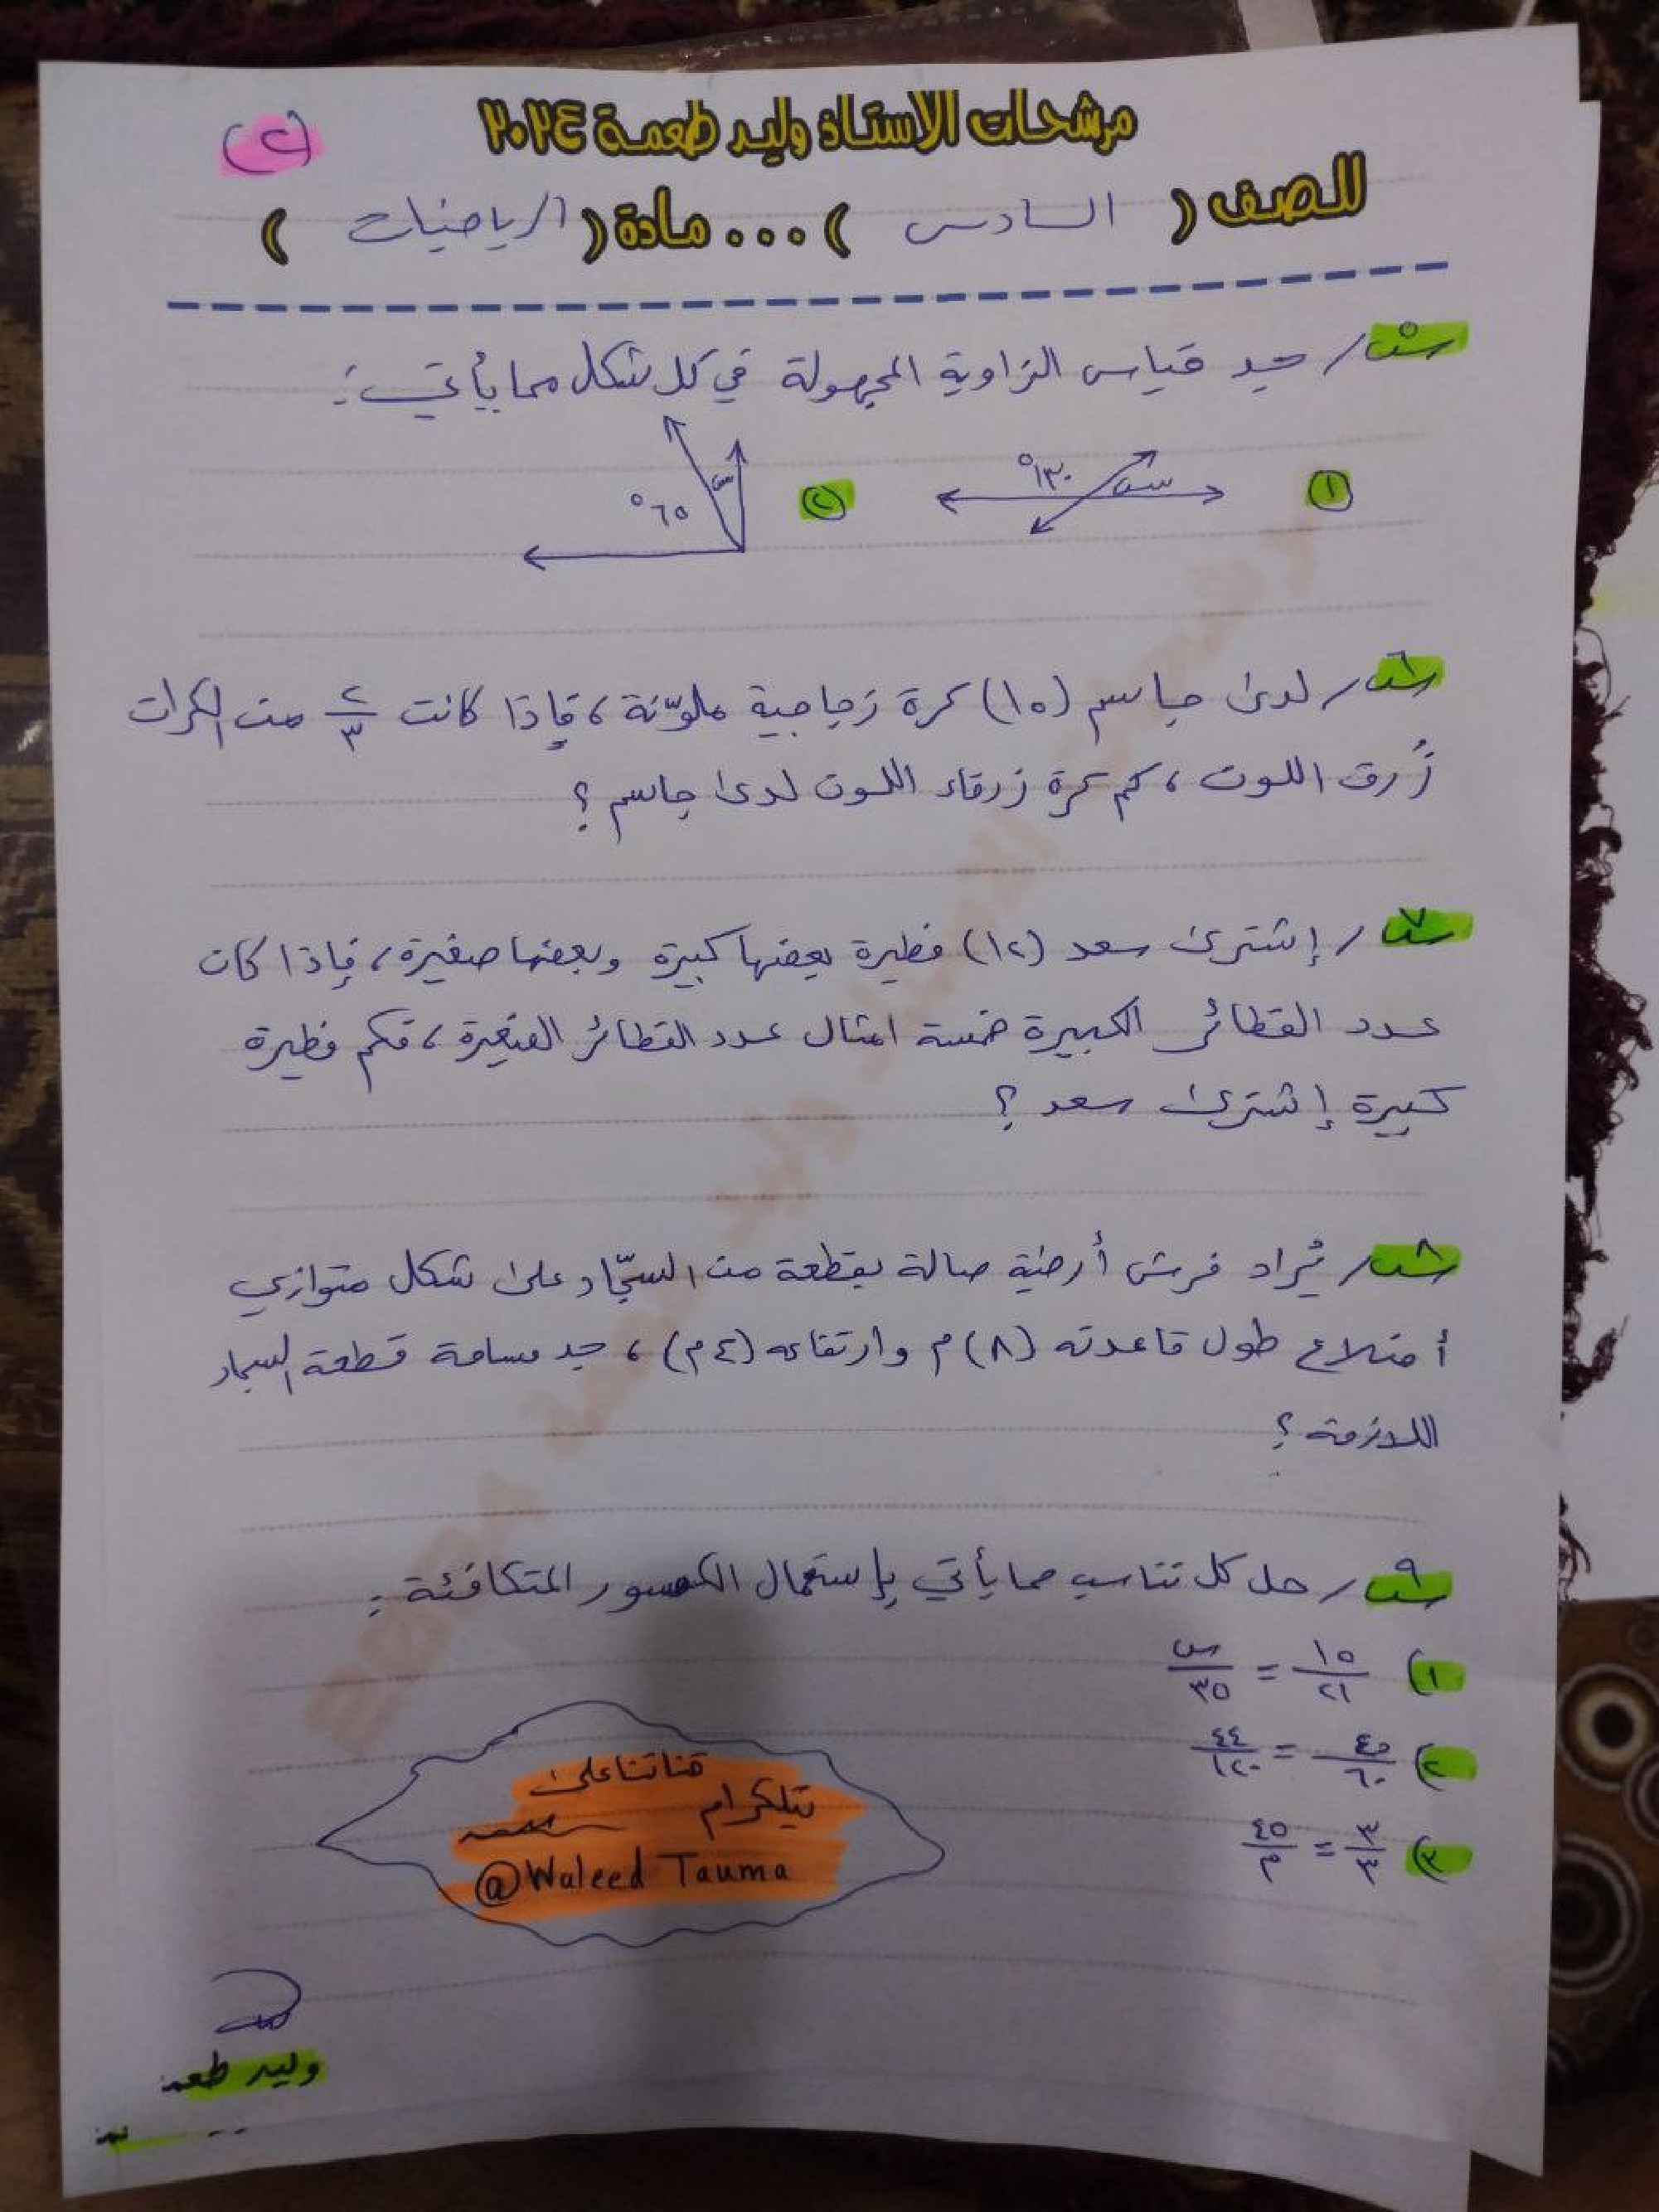 مرشحات الاستاذ وليد طعمة ٢٠٢٤
(٢)
للصف ( السادس ) ... مادة ( الرياضيات )
س٥/ جد قياس الزاوية المجهولة في كل شكل مما يأتي:
١ س ١٣٠° ٢ س ٦٥°
س٦/ لدى جاسم (١٥) كرة زجاجية ملوّنة، فإذا كانت ٢/٣ من الكرات
زُرق اللون، كم كرة زرقاء اللون لدى جاسم؟
س٧/ إشترى سعد (١٢) فطيرة بعضها كبيرة وبعضها صغيرة، فإذا كان
عدد الفطائر الكبيرة خمسة امثال عدد الفطائر الصغيرة، فكم فطيرة
كبيرة إشترى سعد؟
س٨/ يُراد فرش أرضية صالة بقطعة من السجّاد على شكل متوازي
أضلاع طول قاعدته (٨)م وارتفاعه (٤م)، جد مساحة قطعة السجاد
اللازمة؟
س٩/ حل كل تناسب مما يأتي بإستعمال الكسور المتكافئة:
١) ١٥/٢١ = س/٣٥
٢) /٦٠ = ٤٤/١٢٠
٣) = ٤٥/م
قناتنا على
تيلكرام
@Waleed Tauma
وليد طعمة